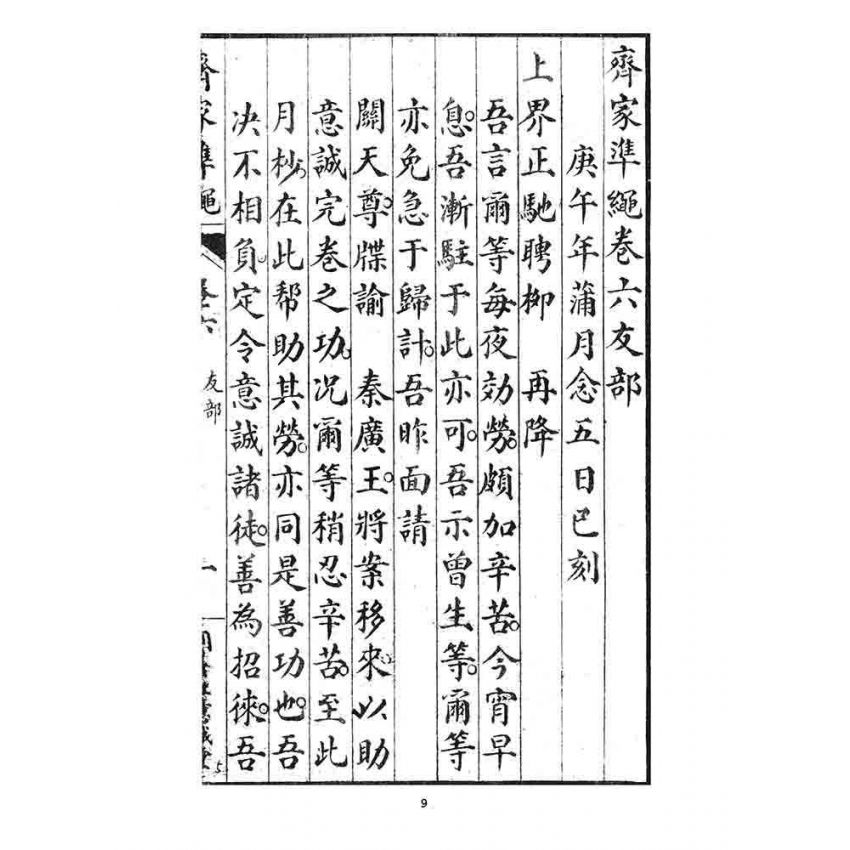 齊家準繩卷六友部
庚午年蒲月念五日巳刻
上界正馳聘柳　再降
吾言爾等每夜効勞。頗加辛苦。今宵早
息。吾漸駐于此亦可。吾示曾生等。爾等
亦免急于歸計。吾昨面請
關天尊。牒諭　秦廣王。將案移來。以助
意誠完卷之功。况爾等稍忍辛苦。至此
月杪。在此帮助其勞。亦同是善功也。吾
决不相負。定令意誠諸徒。善為招徠。吾
齊家準繩
卷六
友部
一
5
9